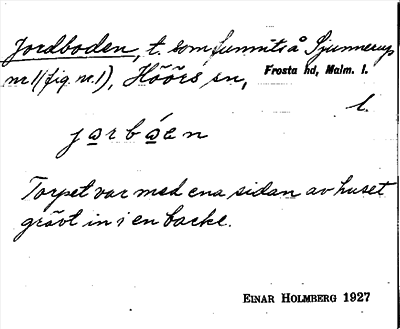 Jordboden, t. som funnits å Sjunnerup
nr 1 (fig nr. 1), Höörs sn, Frosta hd, Malm. l.
l.
jo̲rbó̲en
Torpet var med ena sidan av huset
grävt in i en backe.
EINAR HOLMBERG 1927